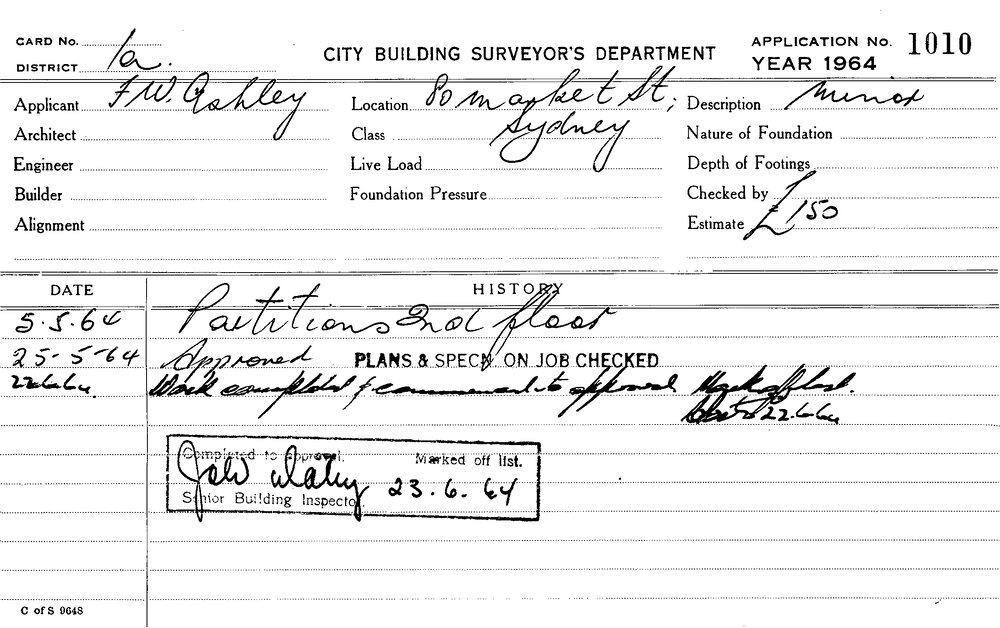 CARD No.
DISTRICT 1a.
CITY BUILDING SURVEYOR'S DEPARTMENT
APPLICATION No. 1010
YEAR 1964
Applicant F.W. Ashley
Location 80 Market St,
Sydney
Description Minor
Architect
Class
Nature of Foundation
Engineer
Live Load
Depth of Footings
Builder
Foundation Pressure
Checked by
Alignment
Estimate £150
DATE
HISTORY
5.5.64 Partitions 2nd floor
25-5-64 Approved PLANS & SPECN ON JOB CHECKED
22.6.64 Work completed & to approval Mark off list.
22.6.64
Completed to approval. Marked off list.
23.6.64
Senior Building Inspector.
C of S 9648